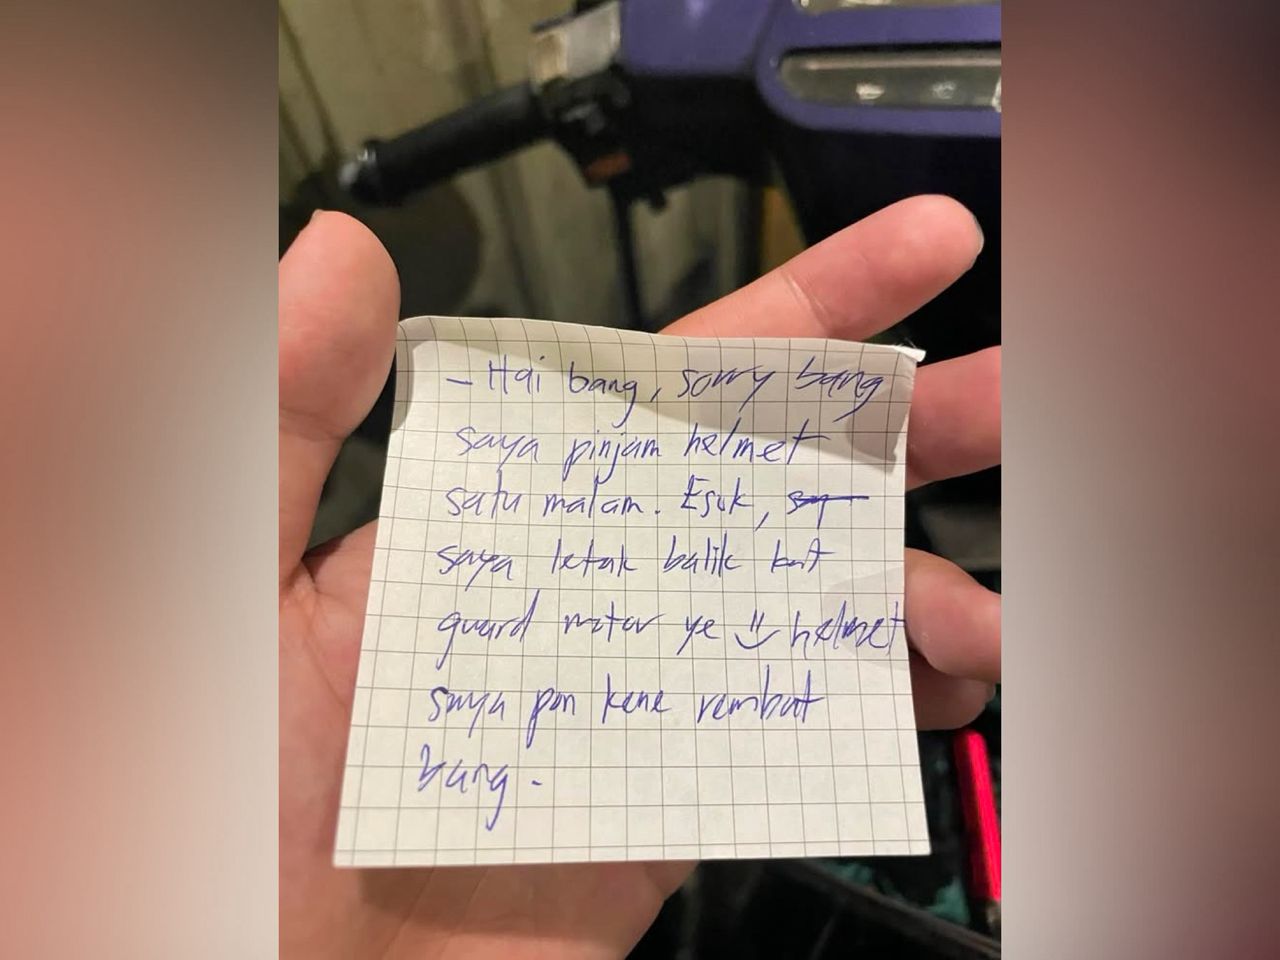 - Hai bang, sorry bang
saya pinjam helmet
satu malam. Esok,
saya letak balik kat
guard motor ye =) helmet
saya pon kene rembat
bang.